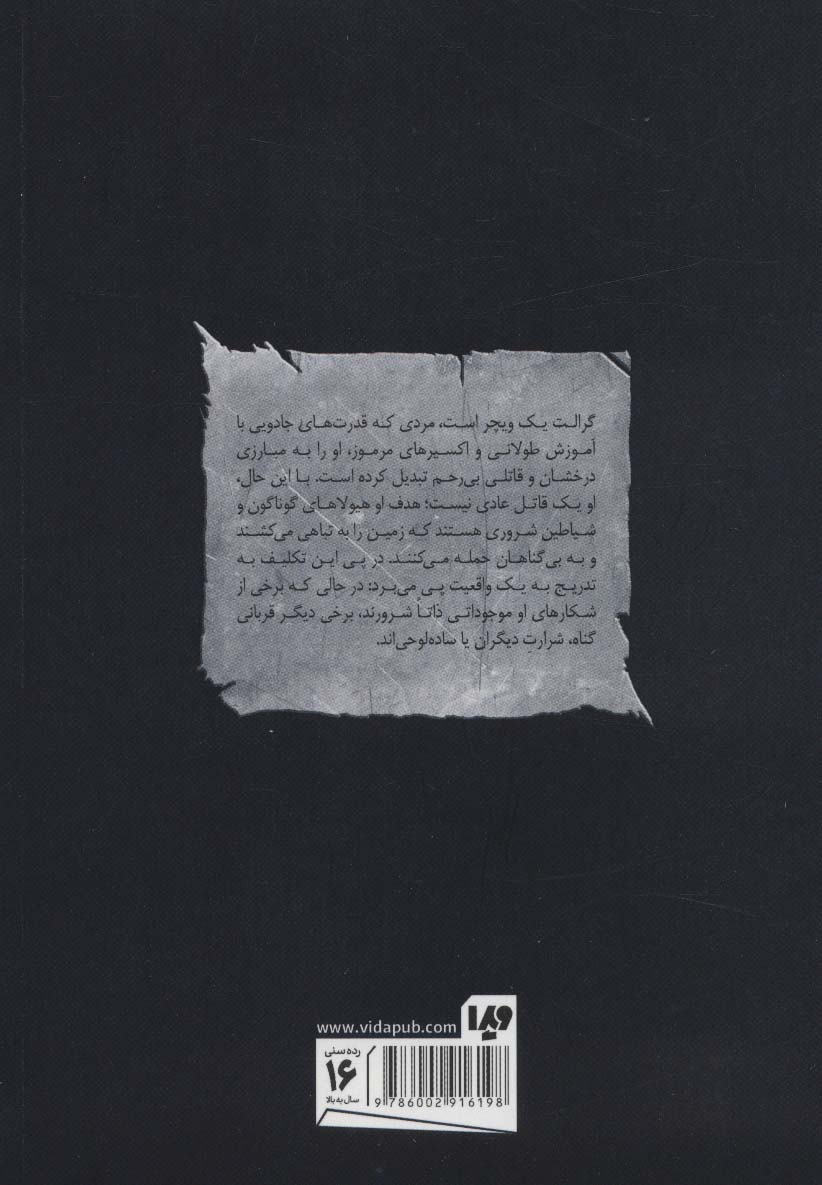 گرالت یک ویچر است، مردی که قدرت‌های جادویی با
آموزش طولانی و اکسیرهای مرموز، او را به مبارزی
درخشان و قاتلی بی‌رحم تبدیل کرده است. با این حال،
او یک قاتل عادی نیست؛ هدف او هیولاهای گوناگون و
شیاطین شروری هستند که زمین را به تباهی می‌کشند
و به بی‌گناهان حمله می‌کنند. در پی این تکلیف به
تدریج به یک واقعیت پی می‌برد: در حالی که برخی از
شکارهای او موجوداتی ذاتاً شرورند، برخی دیگر قربانی
گناه، شرارت دیگران یا ساده‌لوحی‌اند.
www.vidapub.com
ویدا
رده سنی
۱۶
سال به بالا
9 786002 916198